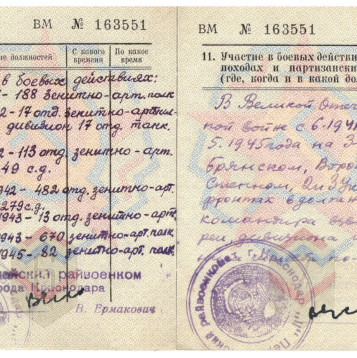 ВМ № 163551
ие должностей
С какого времени
По какое время
в боевых действиях:
- 188 зенитно-арт. полк
2-17 отд. зенитно-арт.
дивизион 17 отд. танк.
2 - 113 отд. зенитно-арт.
49 с.д.
942 - 482 отд. зенитно-арт.
279 с.д.
1943 - 13 отд. зенитно-арт.
1943 - 670 зенитно-арт. полк
1945 - 82 зенитно-арт. полк
райвоенком
города Краснодара
В. Ермакович
ВМ № 163551
11. Участие в боевых действи
походах и партизанск
(где, когда и в какой дол
В Великой Отече
ной войне с 6.194
5.1945 года на З
Брянском, Воро
Степном, 2 и 3 У
фронтах в должн
командира
дивизиона
г. Краснодар